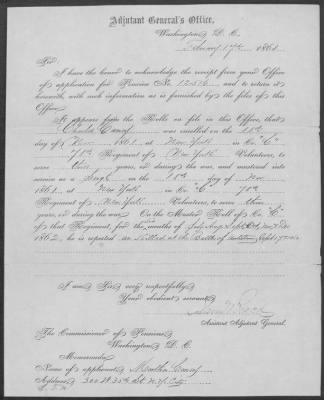 Adjutant General's Office,
Washington, D. C.
February 17th 1863
Sir,
I have the honor to acknowledge the receipt from your Office
of application for Pension No. and to return it
herewith, with such information as is furnished by the files of this
Office.
It appears from the Rolls on file in this Office, that
was enrolled on the 18th
day of Nov 1861 at New York in Co. "C"
Regiment of New York Volunteers, to
serve years, or during the war, and mustered into
service as a Sergt on the 18th day of Nov
1861, at New York in Co. "C"
Regiment of New York Volunteers, to serve three
years, or during the war. On the Muster Roll of Co. "C"
of that Regiment, for the months of
1862, he is reported as Killed at the Battle of Antietam Sept 17th 1862
I am, Sir, very respectfully,
Your obedient servant,
Assistant Adjutant General.
The Commissioner of Pensions,
Washington, D. C.
Memoranda:
Name of applicant, Martha
Address, 300 W. 35th St. N.Y. City